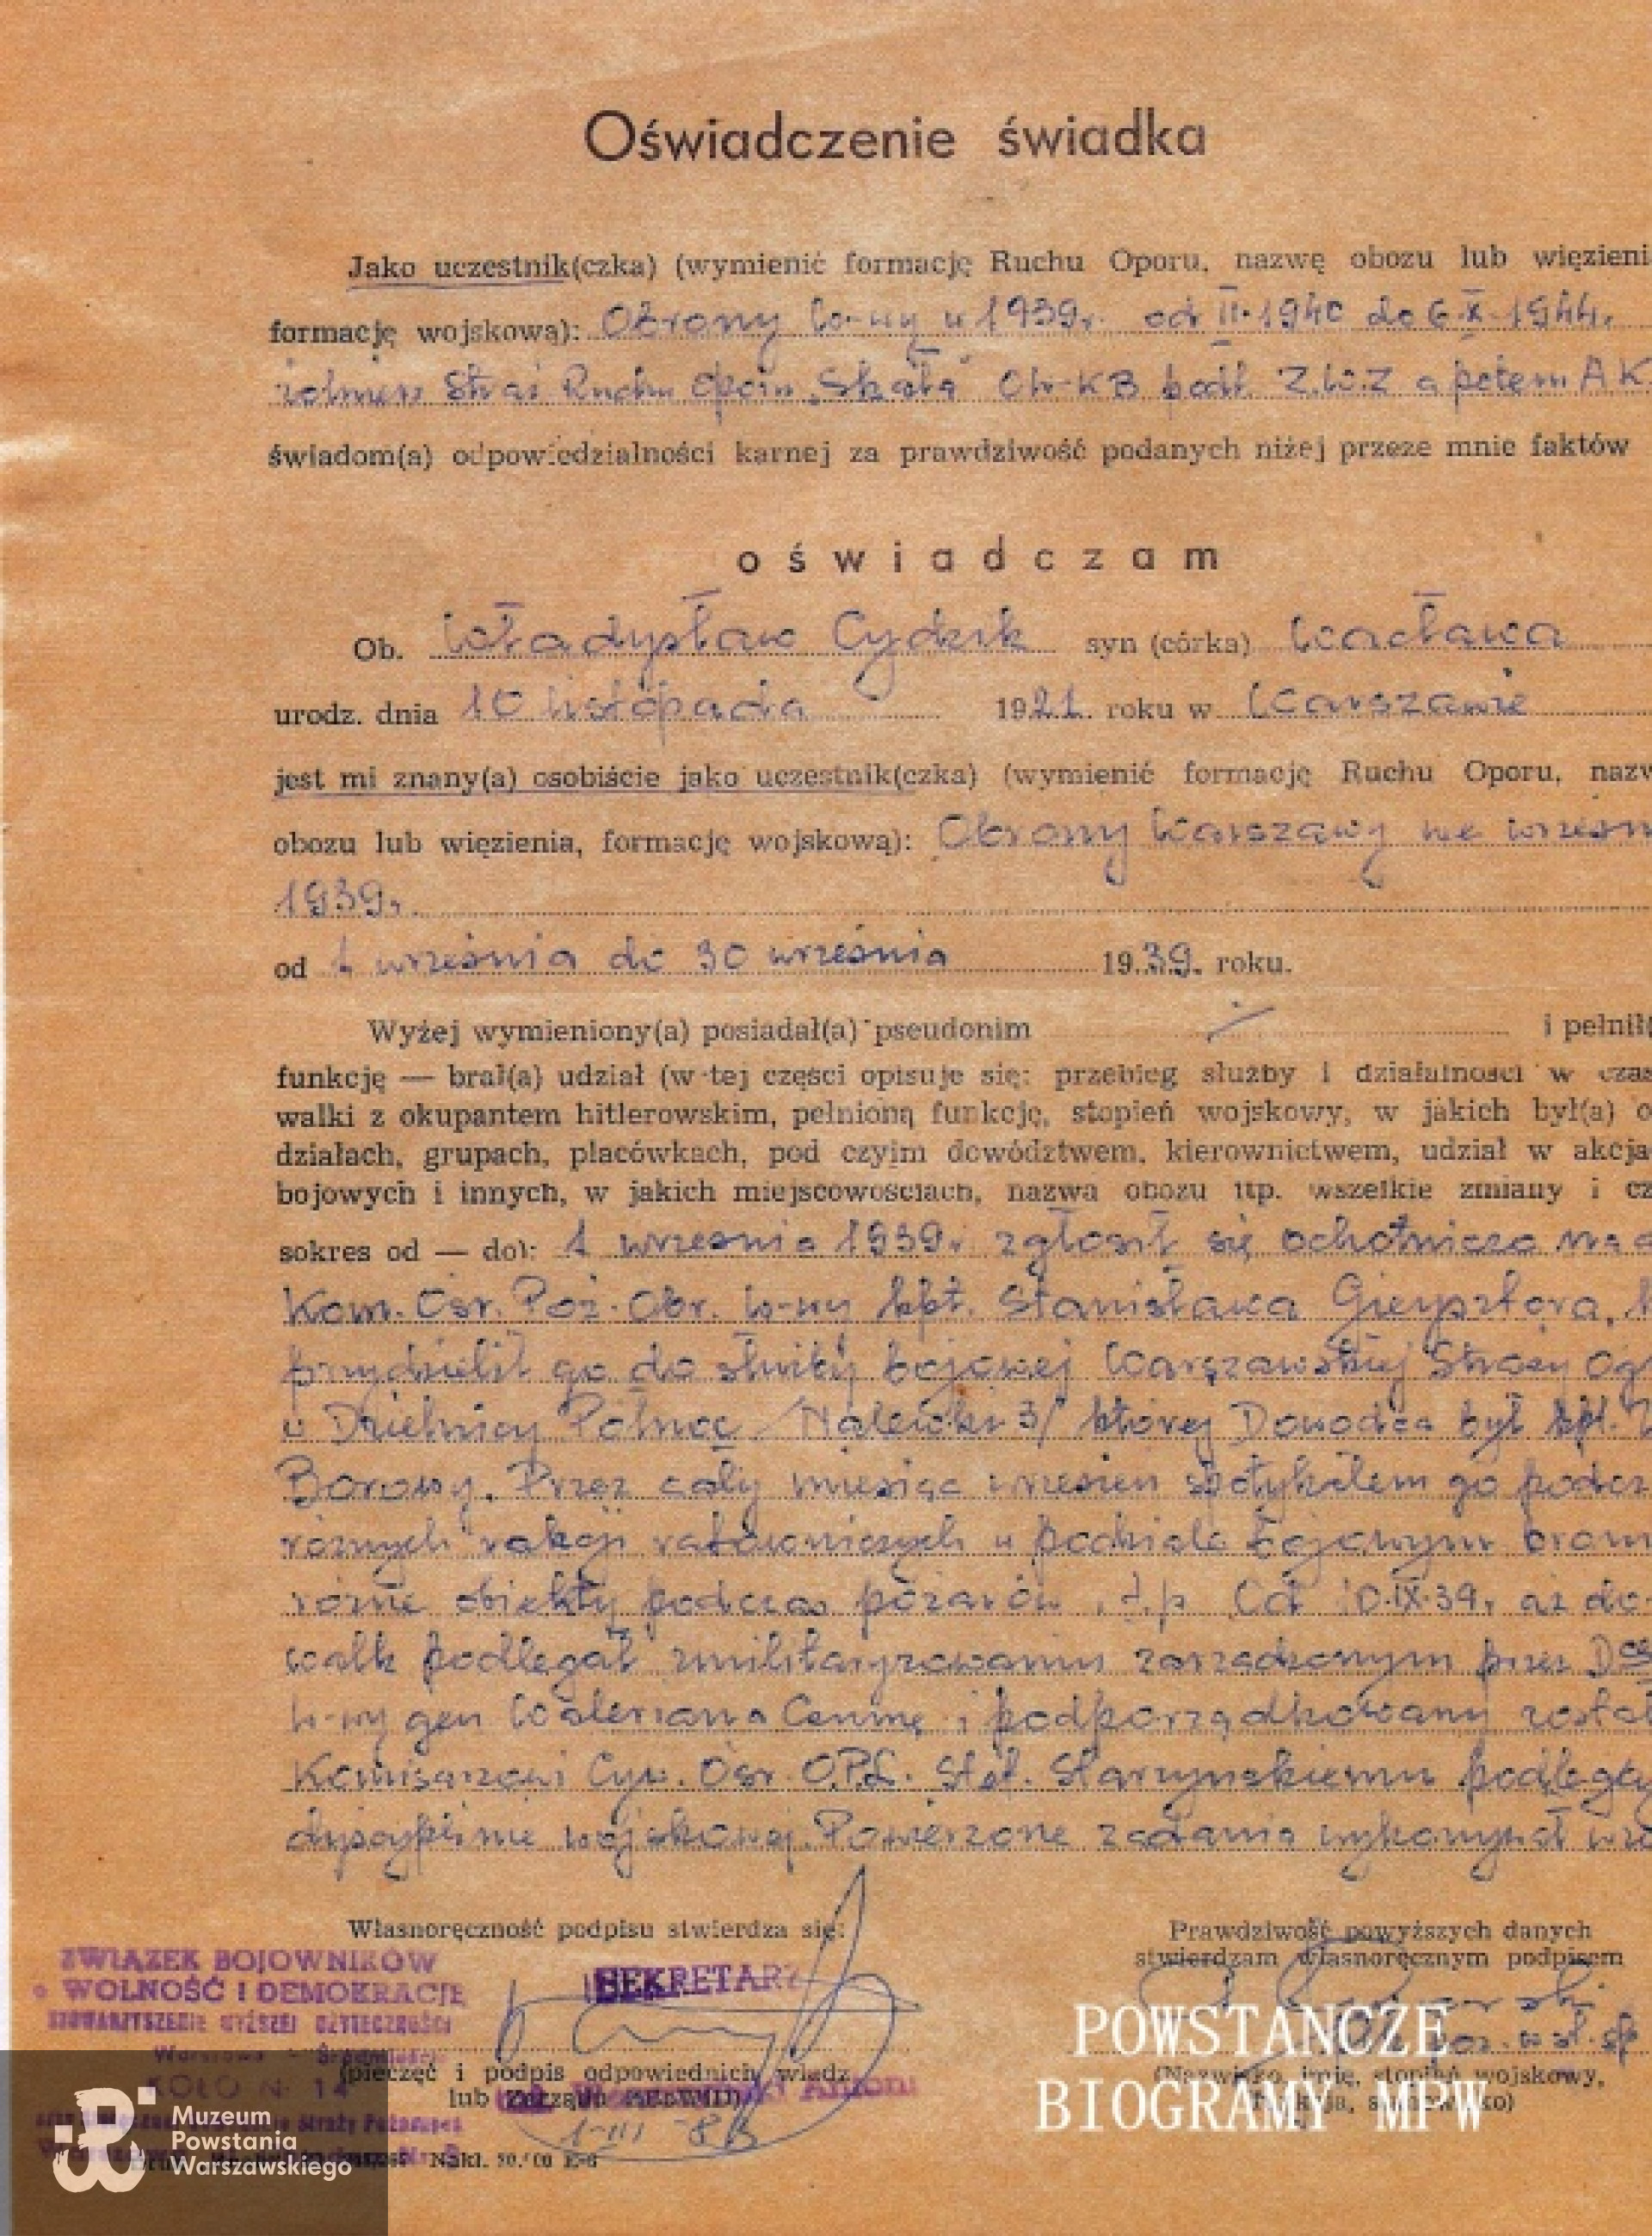 Oświadczenie świadka
Jako uczestnik(czka) (wymienić formację Ruchu Oporu, nazwę obozu lub więzieni
formację wojskową): Obrony W-wy w 1939r. od II.1940 do 6.X.1944.
żołnierz Straż. Ruchu Oporu „Skała" OW-KB podl. Z.W.Z a potem AK
świadom(a) odpowiedzialności karnej za prawdziwość podanych niżej przeze mnie faktów
oświadczam
Ob. Władysław Cyderk syn (córka) Wacława
urodz. dnia 10 listopada 1921. roku w Warszawie
jest mi znany(a) osobiście jako uczestnik(czka) (wymienić formację Ruchu Oporu, nazw
obozu lub więzienia, formację wojskową): Obrony Warszawy we wrześn
1939r.
od 1 września do 30 września 1939. roku.
Wyżej wymieniony(a) posiadał(a) pseudonim — i pełnił(
funkcję — brał(a) udział (w tej części opisuje się: przebieg służby i działalności w czas
walki z okupantem hitlerowskim, pełnioną funkcję, stopień wojskowy, w jakich był(a) o
działach, grupach, placówkach, pod czyim dowództwem, kierownictwem, udział w akcja
bojowych i innych, w jakich miejscowościach, nazwa obozu itp. wszelkie zmiany i cz
sokres od — do): 1 września 1939r. zgłosił się ochotniczo na
Kom. Osr. Poż. Obr. W-wy kpt. Stanisława Gieysztora,
przydzielił go do służby bojowej Warszawskiej Straży Og
w Dzielnicy Północ /Nalewki 3/ której Dowódcą był kpt.
Borowy. Przez cały miesiąc wrzesień spotykałem go podcz
różnych akcji ratowniczych w podziale bojowym bron
różne obiekty podczas pożarów i.t.p. Od 10.IX.39r. aż do
walk podlegał zmilitaryzowaniu zarządzonym przez
W-wy gen Waleriana Czumę i podporządkowany został
Komisarzowi Cyw. Osr. O.P.L. Stef. Starzyńskiemu podlega
dyscyplinie wojskowej. Powierzone zadania wykonywał
Własnoręczność podpisu stwierdza się:
Prawdziwość powyższych danych
stwierdzam własnoręcznym podpisem
ZWIĄZEK BOJOWNIKÓW
o WOLNOŚĆ I DEMOKRACJĘ
STOWARZYSZENIE WYŻSZEJ UŻYTECZNOŚCI
Warszawa - Śródmieście
KOŁO Nr 14
SEKRETARZ
(pieczęć i podpis odpowiednich władz
lub Zarządu ZBoWiD)
Antoni
1-III-8
Nakl.
(Nazwisko, imię, stopień wojskowy,
POWSTAŃCZE
BIOGRAMY MPW
Muzeum
Powstania
Warszawskiego